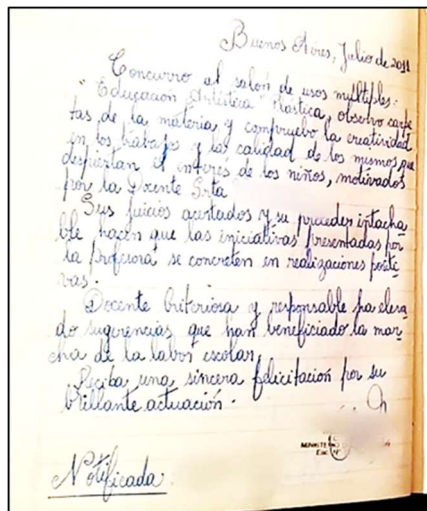 Buenos Aires, Julio de 2011
Concurro al salón de usos múltiples:
"Educación Artística" Plástica, observo carpe
tas de la materia y compruebo la creatividad
en los trabajos y la calidad de los mismos que
despiertan el interés de los niños, motivados
por la Docente Srta
Sus juicios acertados y su proceder intacha
ble hacen que las iniciativas presentadas por
la Profesora se concreten en realizaciones positi
vas.
Docente criteriosa y responsable ha eleva
do sugerencias que han beneficiado la mar
cha de la labor escolar.
Reciba una sincera felicitación por su
brillante actuación.
Notificada: